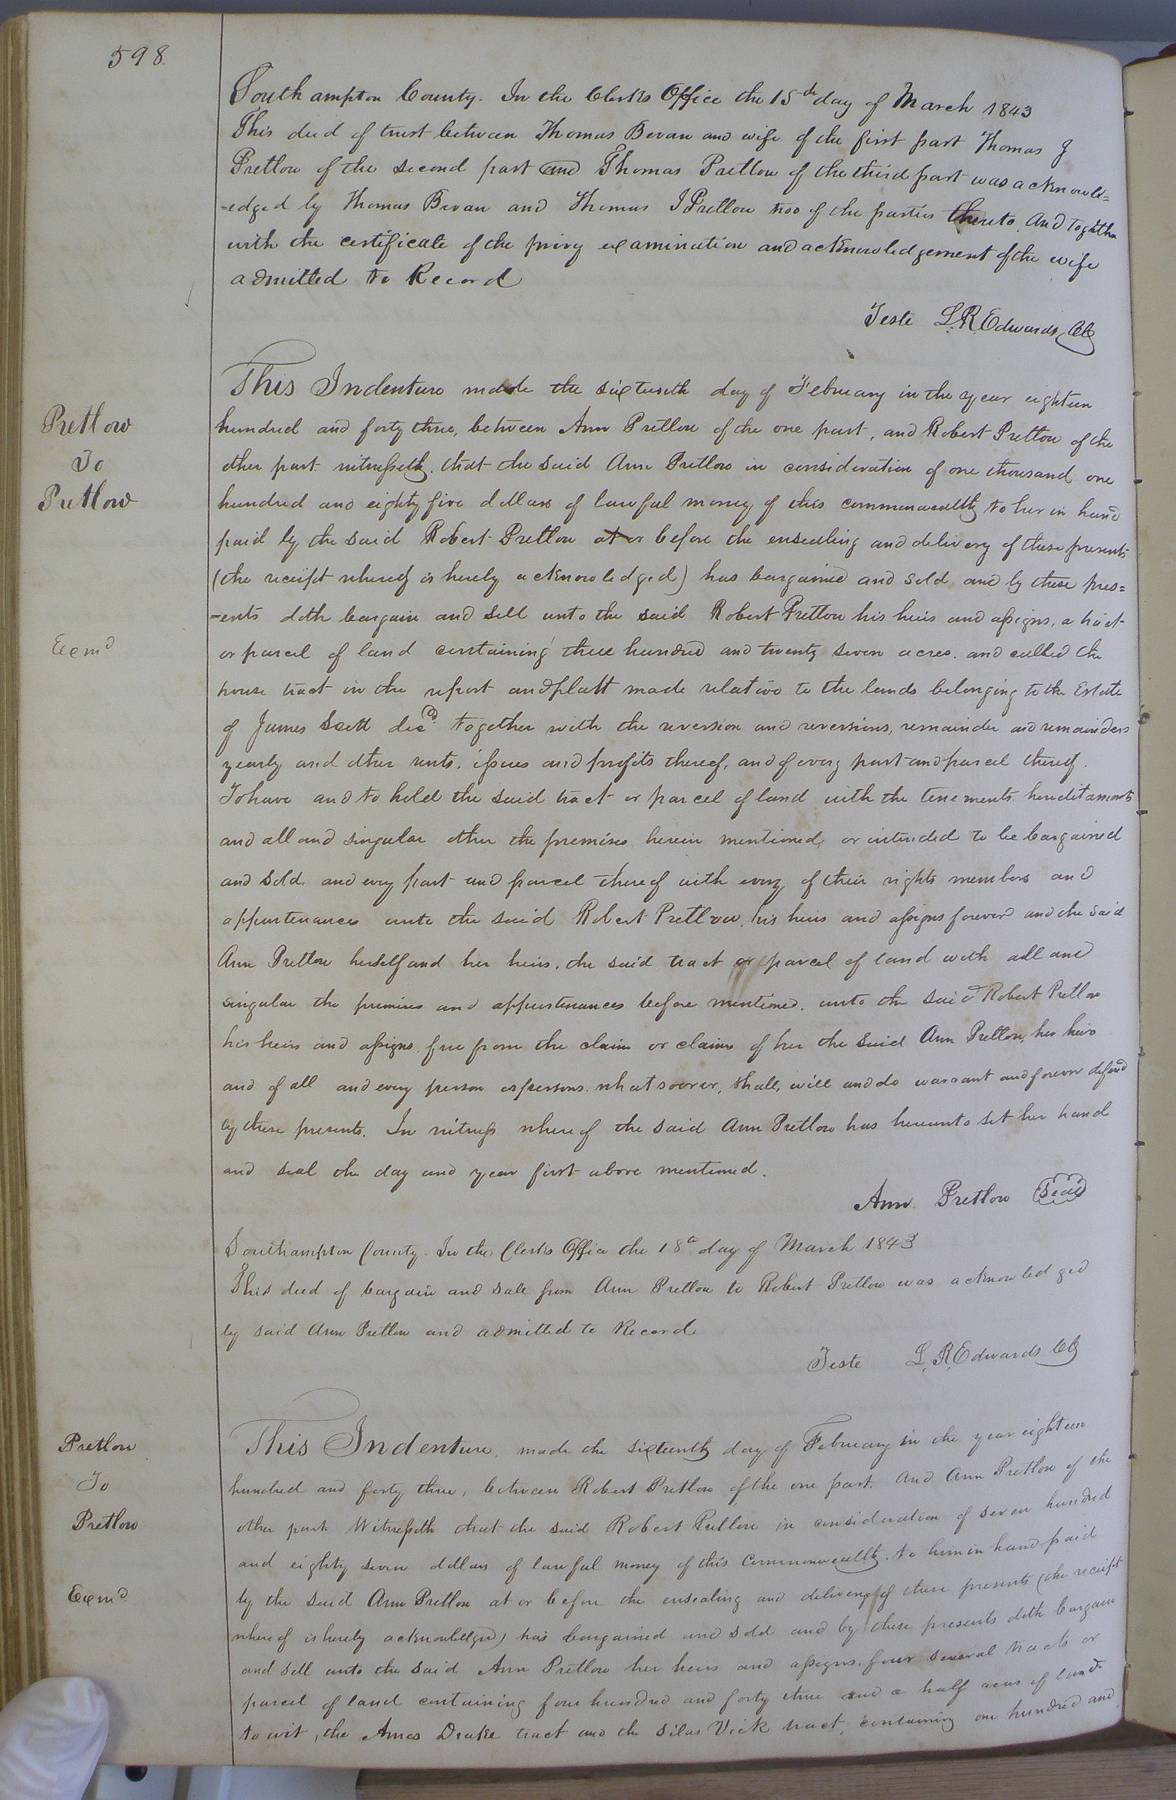 598
Southampton County. In the Clerks Office the 15th day of March 1843
This deed of trust between Thomas Bevan and wife of the first part Thomas J
Pretlow of the second part and Thomas Pretlow of the third part was acknowl=
-edged by Thomas Bevan and Thomas J Pretlow two of the parties thereto. And together
with the certificate of the privy examination and acknowledgement of the wife
admitted to Record
Teste L. R. Edwards, Clk
Pretlow
To
Pretlow
Exemd
This Indenture made the sixteenth day of February in the year eighteen
hundred and forty three, between Ann Pretlow of the one part, and Robert Pretlow of the
other part witnesseth, that the said Ann Pretlow in consideration of one thousand one
hundred and eighty five dollars of lawful money of this commonwealth to her in hand
paid by the said Robert Pretlow at or before the ensealing and delivery of these presents
(the receipt whereof is hereby acknowledged) has bargained and sold and by these pres=
-ents doth bargain and sell unto the said Robert Pretlow his heirs and assigns, a tract
or parcel of land containing three hundred and twenty seven acres. and called the
house tract in the report and platt made relative to the lands belonging to the Estate
of James Scott decd. together with the reversion and reversions, remainder and remainders
yearly and other rents, issues and profits thereof, and of every part and parcel thereof.
To have and to hold the said tract or parcel of land with the tenements hereditaments
and all and singular other the premises herein mentioned, or intended to be bargained
and sold. and every part and parcel thereof with every of their rights members and
appurtenances unto the said Robert Pretlow, his heirs and assigns forever and the said
Ann Pretlow herself and her heirs, the said tract or parcel of land with all and
singular the premises and appurtenances before mentioned, unto the said Robert Pretlow
his heirs and assigns, free from the claim or claims of her the said Ann Pretlow, her heirs
and of all and every person or persons whatsoever, shall, will and do warrant and forever defend
by these presents. In witness whereof the said Ann Pretlow has hereunto set her hand
and seal the day and year first above mentioned.
Ann Pretlow Seal
Southampton County. In the Clerks Office the 18th day of March 1843
This deed of bargain and sale from Ann Pretlow to Robert Pretlow was acknowledged
by said Ann Pretlow and admitted to Record
Teste L. R. Edwards Clk
Pretlow
To
Pretlow
Exemd
This Indenture, made the sixteenth day of February in the year eighteen
hundred and forty three, between Robert Pretlow of the one part. And Ann Pretlow of the
other part Witnesseth that the said Robert Pretlow in consideration of seven hundred
and eighty seven dollars of lawful money of this Commonwealth, to him in hand paid
by the said Ann Pretlow at or before the ensealing and delivery of these presents (the receipt
whereof is hereby acknowledged) has bargained and sold and by these presents doth bargain
and sell unto the said Ann Pretlow her heirs and assigns, four several tracts or
parcel of land containing four hundred and forty three and a half acres of land.
to wit, the Amos Drake tract and the Silas Vick tract, containing one hundred and